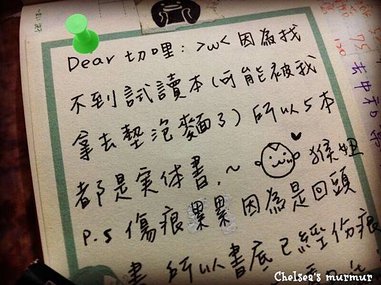 Dear 切哩: >w< 因為找
不到試讀本(可能被我
拿去墊泡麵了)所以5本
都是实体書.~ 猴姐
P.S 傷痕累累因為是回頭
書 所以書底已經伤痕
Chelsea's murmur